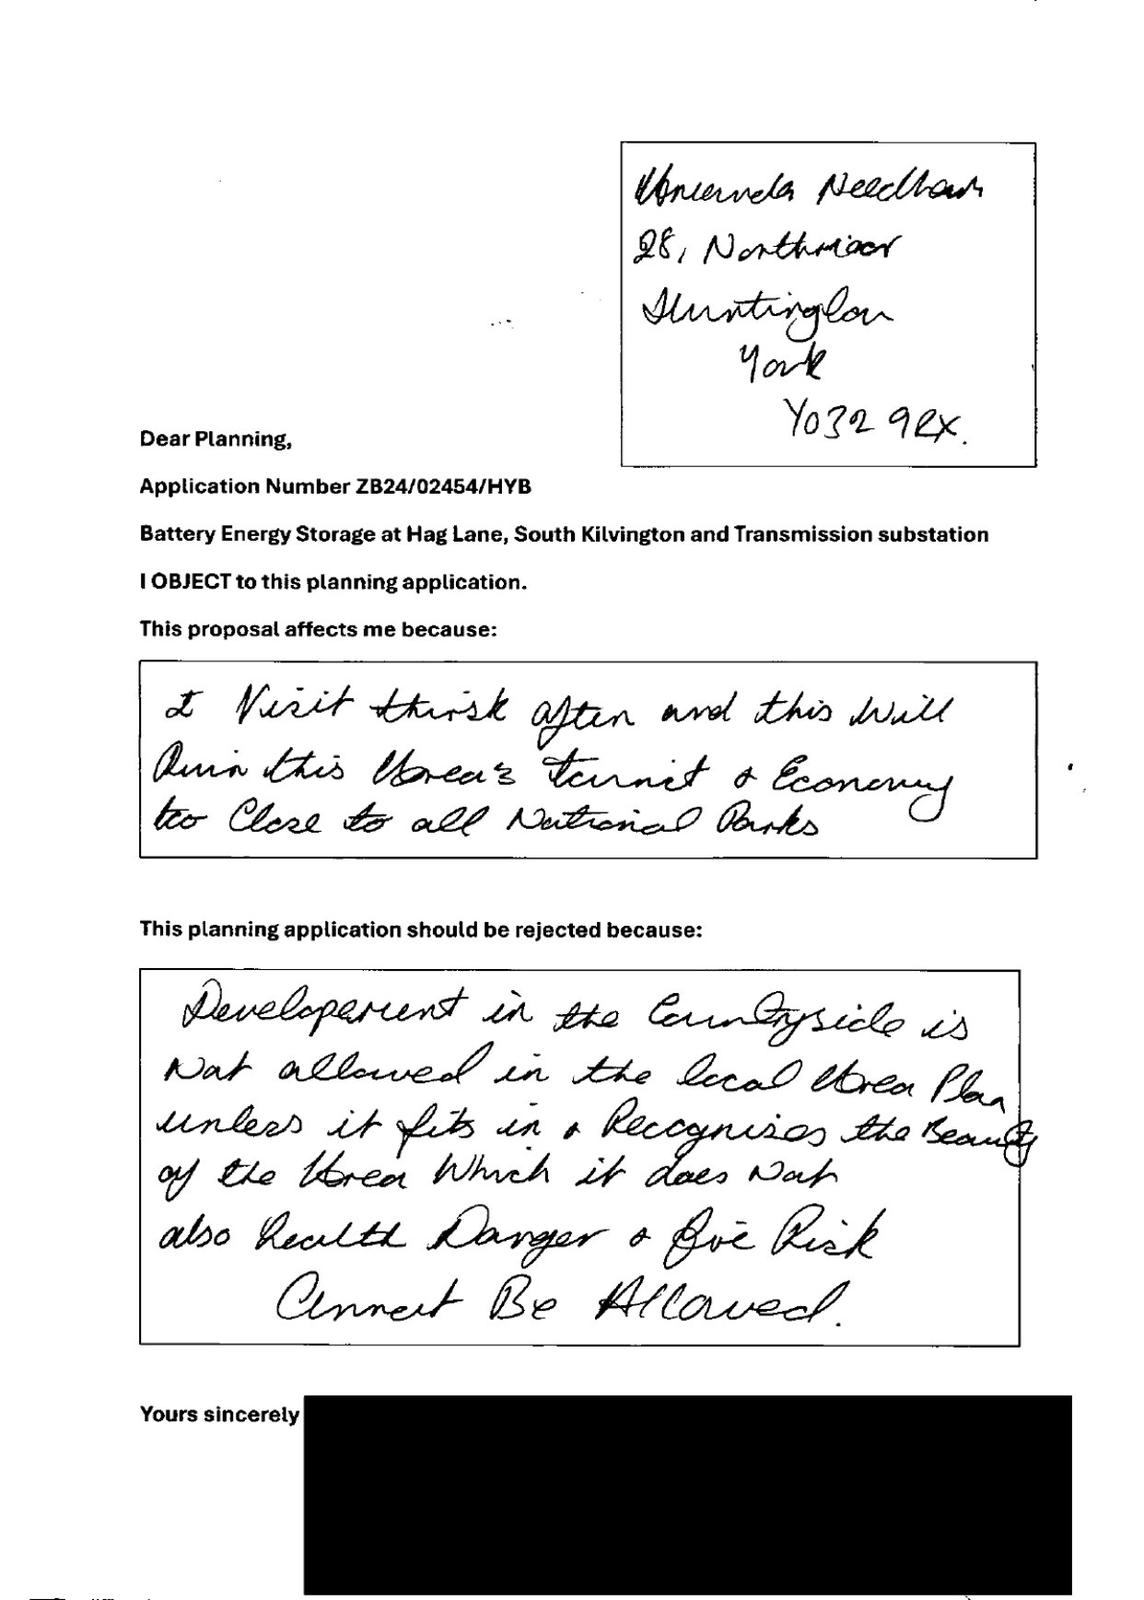 Amanda Needham
28, Northmoor
Huntington
York
YO32 9RX.
Dear Planning,
Application Number ZB24/02454/HYB
Battery Energy Storage at Hag Lane, South Kilvington and Transmission substation
I OBJECT to this planning application.
This proposal affects me because:
I Visit thirsk often and this Will
Ruin this Area's tourist & Economy
too Close to all National Parks
This planning application should be rejected because:
Development in the Countryside is
Not allowed in the local Area Plan
unless it fits in & Recognises the Beauty
of the Area Which it does Not
also health Danger & fire Risk
Cannot Be Allowed.
Yours sincerely